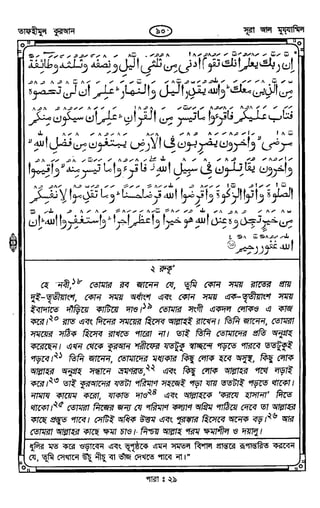 তাফহীমুল কুরআন
৯০
সূরা আল মুয্‌যাম্মিল
إِنَّ رَبَّكَ يَعْلَمُ أَنَّكَ تَقُومُ أَدْنَىٰ مِنْ ثُلُثَيِ الَّيْلِ وَنِصْفَهُ وَثُلُثَهُ وَطَائِفَةٌ
مِنَ الَّذِينَ مَعَكَ وَاللَّهُ يُقَدِّرُ الَّيْلَ وَالنَّهَارَ عَلِمَ أَنْ لَنْ تُحْصُوهُ
فَتَابَ عَلَيْكُمْ فَاقْرَءُوا مَا تَيَسَّرَ مِنَ الْقُرْآنِ عَلِمَ أَنْ سَيَكُونُ مِنْكُمْ
مَرْضَىٰ وَآخَرُونَ يَضْرِبُونَ فِي الْأَرْضِ يَبْتَغُونَ مِنْ فَضْلِ اللَّهِ
وَآخَرُونَ يُقَاتِلُونَ فِي سَبِيلِ اللَّهِ فَاقْرَءُوا مَا تَيَسَّرَ مِنْهُ وَأَقِيمُوا
الصَّلَوٰةَ وَآتُوا الزَّكَوٰةَ وَأَقْرِضُوا اللَّهَ قَرْضًا حَسَنًا وَمَا تُقَدِّمُوا لِأَنْفُسِكُمْ
مِنْ خَيْرٍ تَجِدُوهُ عِنْدَ اللَّهِ هُوَ خَيْرًا وَأَعْظَمَ أَجْرًا وَاسْتَغْفِرُوا اللَّهَ إِنَّ
اللَّهَ غَفُورٌ رَحِيمٌ
২ রুকূ'
হে নবী,১৮ তোমার রব জানেন যে, তুমি কোন সময় রাতের প্রায়
দুই-তৃতীয়াংশ, কোন সময় অর্ধাংশ এবং কোন সময় এক-তৃতীয়াংশ সময়
ইবাদাতে দাঁড়িয়ে কাটিয়ে দাও।১৯ তোমার সংগী একদল লোকও এ কাজ
করে।২০ রাত এবং দিনের সময়ের হিসেব আল্লাহই রাখেন। তিনি জানেন, তোমরা
সময়ের সঠিক হিসেব রাখতে পারো না। তাই তিনি তোমাদের প্রতি অনুগ্রহ
করেছেন। এখন থেকে কুরআন শরীফের যতটুকু স্বাচ্ছন্দে পড়তে পারবে ততটুকুই
পড়বে।২১ তিনি জানেন, তোমাদের মধ্যকার কিছু লোক হবে অসুস্থ, কিছু লোক
আল্লাহর অনুগ্রহ সন্ধানে ভ্রমণরত,২২ এবং কিছু লোক আল্লাহর পথে লড়াই
করে।২৩ তাই কুরআনের যতটা পরিমাণ সহজেই পড়া যায় ততটাই পড়তে থাকো।
নামায কায়েম করো, যাকাত দাও২৪ এবং আল্লাহকে 'করযে হাসানা' দিতে
থাকো।২৫ তোমরা নিজের জন্য যে পরিমাণ কল্যাণ অগ্রিম পাঠিয়ে দেবে তা আল্লাহর
কাছে প্রস্তুত পাবে। সেটিই অধিক উত্তম এবং পুরস্কার হিসেবে অনেক বড়।২৬ আর
তোমরা আল্লাহর কাছে ক্ষমা চাও। নিশ্চয় আল্লাহ পরম ক্ষমাশীল ও দয়ালু।
ধূলির মত করে ওড়াবেন এবং ভূপৃষ্ঠকে এমন সমতল বিশাল প্রান্তরে রূপান্তরিত করবেন
যে, তুমি সেখানে উঁচু নীচু বা ভাঁজ দেখতে পাবে না।"
পারা : ২৯